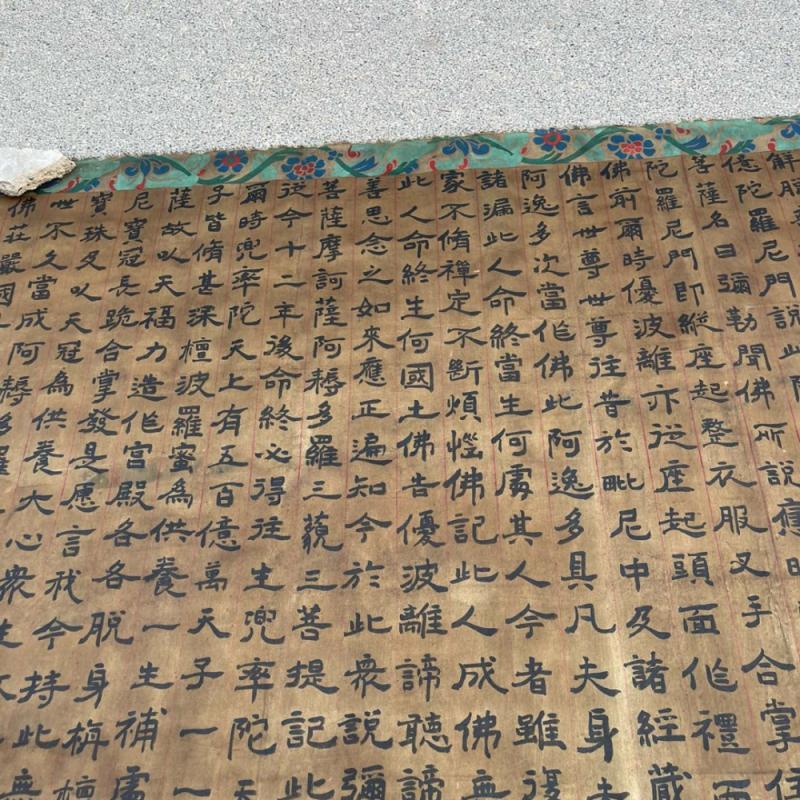 解脫
億陀羅尼門說此陀
菩薩名曰彌勒聞佛所說應時
陀羅尼門即縱座起整衣服叉手合掌住
佛前爾時優波離亦從座起頭面作禮而
佛言世尊世尊往昔於毗尼中及諸經藏
阿逸多次當作佛此阿逸多具凡夫身未
諸漏此人命終當生何處其人今者雖復
家不脩禪定不斷煩惱佛記此人成佛無
此人命終生何國土佛告優波離諦聽諦
善思念之如來應正遍知今於此眾說彌
菩薩摩訶薩阿耨多羅三藐三菩提記此
從今十二年後命終必得往生兜率陀天
爾時兜率陀天上有五百億萬天子一一
子皆脩甚深檀波羅蜜為供養一生補處
薩故以天福力造作宮殿各各脫身栴檀
尼寶冠長跪合掌發是愿言我今持此無
寶珠及以天冠為供養大心眾生
世不久當成阿耨多羅
佛莊嚴國